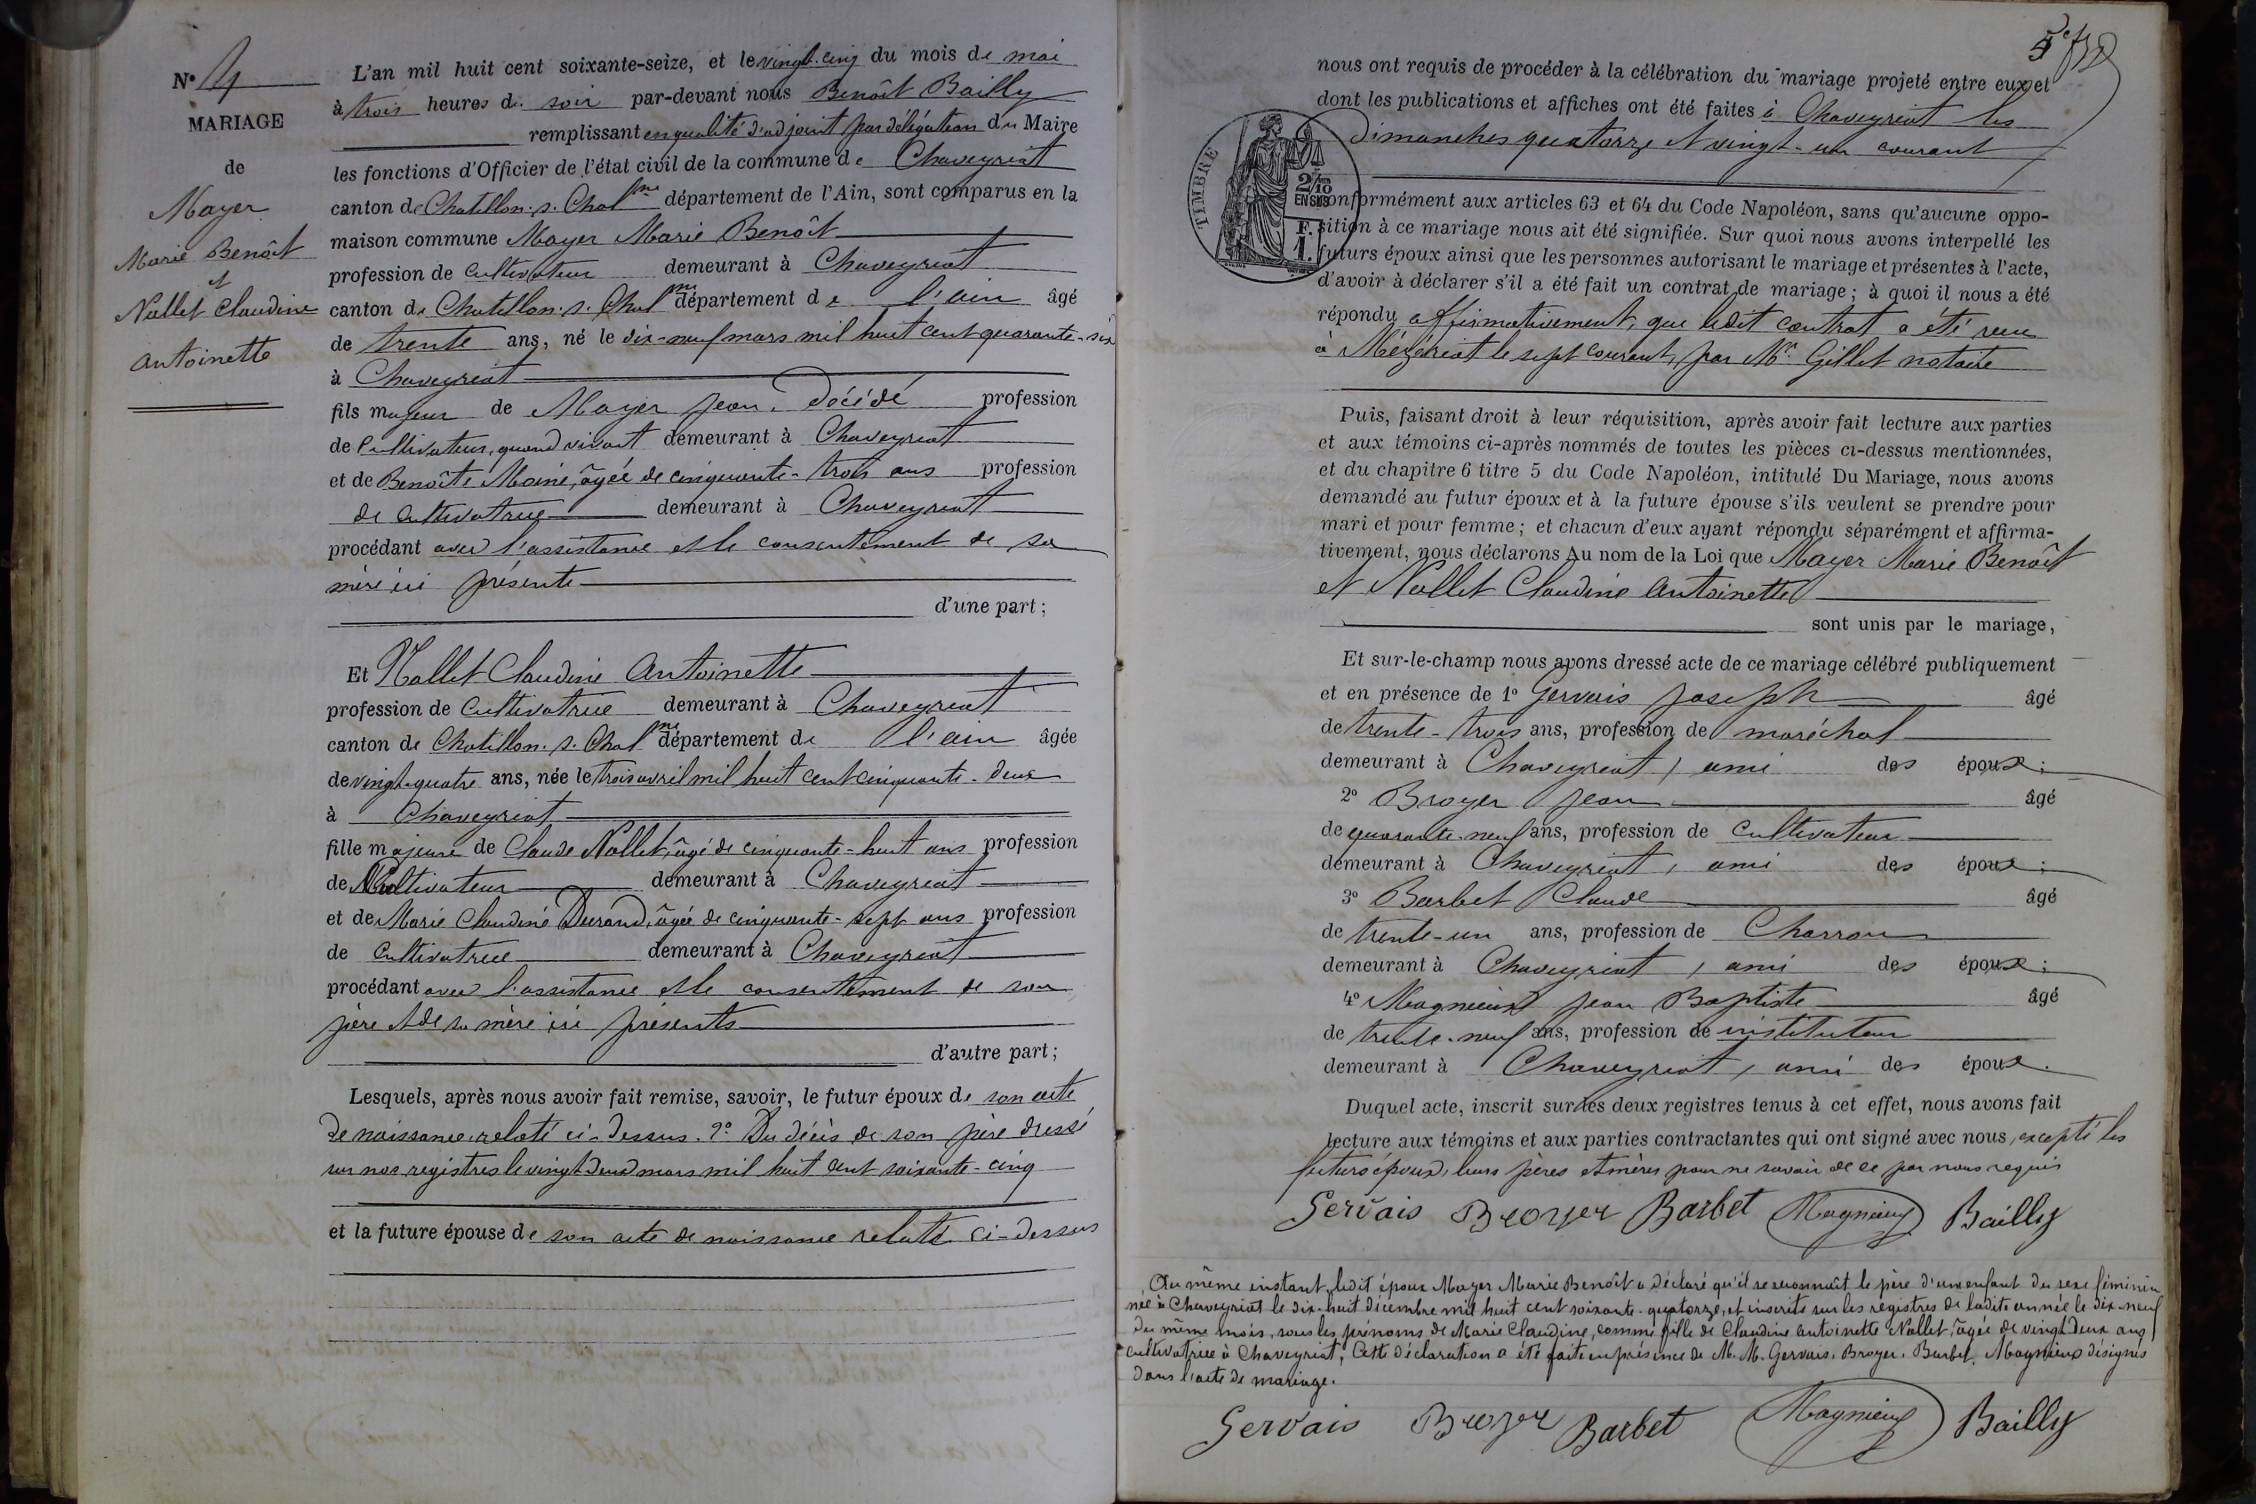 N° 4
MARIAGE
de
Mayer
Marie Benoît
et
Nallet Claudine
antoinette
L'an mil huit cent soixante-seize, et le vingt-cinq du mois de mai
à trois heures du soir par-devant nous Benoît Bailly
remplissant en qualité d'adjoint par délégation du Maire
les fonctions d'Officier de l'état civil de la commune de Chaveyriat
canton de Chatillon-s-Chalne département de l'Ain, sont comparus en la
maison commune Mayer Marie Benoît
profession de cultivateur demeurant à Chaveyriat
canton de Chatillon-s-Chalne département de l'ain âgé
de trente ans, né le dix-neuf mars mil huit cent quarante-six
à Chaveyriat
fils majeur de Mayer Jean, décédé profession
de Cultivateur, quand vivant demeurant à Chaveyriat
et de Benoîte Moiné, âgée de cinquante-trois ans profession
de cultivatrice demeurant à Chaveyriat
procédant avec l'assistance et le consentement de sa
mère ici présente
d'une part ;
Et Nallet Claudine Antoinette
profession de Cultivatrice demeurant à Chaveyriat
canton de Chatillon-s-Chalne département de l'ain âgée
de vingt-quatre ans, née le trois avril mil huit cent cinquante-deux
à Chaveyriat
fille majeure de Claude Nallet, âgé de cinquante-huit ans profession
de Cultivateur demeurant à Chaveyriat
et de Marie Claudine Durand, âgée de cinquante-sept ans profession
de Cultivatrice demeurant à Chaveyriat
procédant avec l'assistance et le consentement de son
père et de sa mère ici présents
d'autre part ;
Lesquels, après nous avoir fait remise, savoir, le futur époux de son acte
de naissance relaté ci-dessus. 2° Du décès de son père dressé
sur nos registres le vingt-deux mars mil huit cent soixante-cinq
et la future épouse de son acte de naissance relaté ci-dessus
nous ont requis de procéder à la célébration du mariage projeté entre eux et
dont les publications et affiches ont été faites à Chaveyriat les
dimanches quatorze et vingt-un courant
TIMBRE
2/10
EN SUS
F.
1.
conformément aux articles 63 et 64 du Code Napoléon, sans qu'aucune oppo-
sition à ce mariage nous ait été signifiée. Sur quoi nous avons interpellé les
futurs époux ainsi que les personnes autorisant le mariage et présentes à l'acte,
d'avoir à déclarer s'il a été fait un contrat de mariage ; à quoi il nous a été
répondu affirmativement, que ledit contrat a été reçu
à Mézériat le sept courant, par Mr. Gillet notaire
Puis, faisant droit à leur réquisition, après avoir fait lecture aux parties
et aux témoins ci-après nommés de toutes les pièces ci-dessus mentionnées,
et du chapitre 6 titre 5 du Code Napoléon, intitulé Du Mariage, nous avons
demandé au futur époux et à la future épouse s'ils veulent se prendre pour
mari et pour femme ; et chacun d'eux ayant répondu séparément et affirma-
tivement, nous déclarons Au nom de la Loi que Mayer Marie Benoît
et Nallet Claudine Antoinette
sont unis par le mariage,
Et sur-le-champ nous avons dressé acte de ce mariage célébré publiquement
et en présence de 1° Gervais Joseph âgé
de trente-trois ans, profession de maréchal
demeurant à Chaveyriat, ami des époux ;
2° Broyer Jean âgé
de quarante-neuf ans, profession de cultivateur
demeurant à Chaveyriat, ami des époux ;
3° Barbet Claude âgé
de trente-un ans, profession de Charron
demeurant à Chaveyriat, ami des époux ;
4° Magnieux Jean Baptiste âgé
de trente-neuf ans, profession de instituteur
demeurant à Chaveyriat, ami des époux.
Duquel acte, inscrit sur les deux registres tenus à cet effet, nous avons fait
lecture aux témoins et aux parties contractantes qui ont signé avec nous, excepté les
futurs époux, leurs pères et mères pour ne savoir de ce par nous requis
Gervais Broyer Barbet Magnieux Bailly
Au même instant, ledit époux Mayer Marie Benoît a déclaré qu'il se reconnaît le père d'un enfant du sexe féminin
née à Chaveyriat le dix-huit décembre mil huit cent soixante-quatorze, et inscrite sur les registres de ladite année le dix-neuf
du même mois, sous les prénoms de Marie Claudine, comme fille de Claudine antoinette Nallet, âgée de vingt-deux ans
cultivatrice à Chaveyriat, Cette déclaration a été faite en présence de M. M. Gervais, Broyer, Barbet, Magnieux désignés
dans l'acte de mariage.
Gervais Broyer Barbet Magnieux Bailly